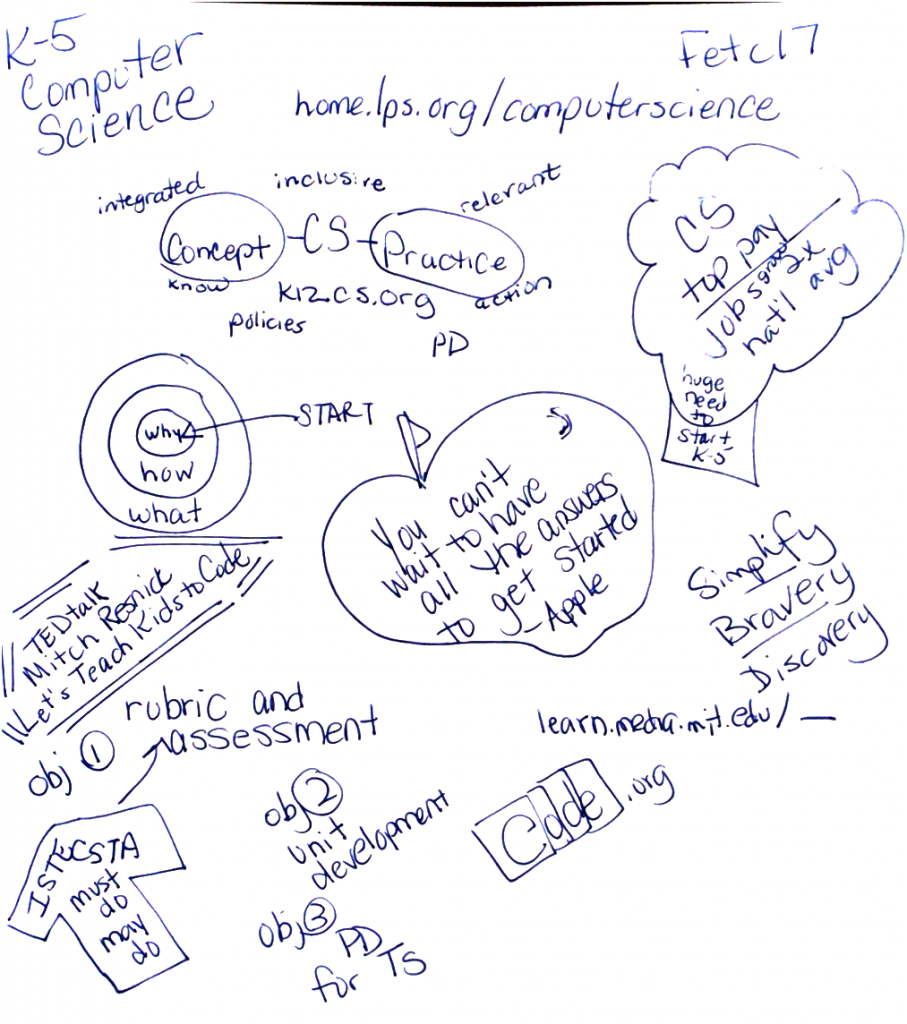 K-5
Computer
Science
Fetc17
home.lps.org/computerscience
integrated
inclusive
relevant
Concept - CS - Practice
know
k12cs.org
action
policies
PD
CS
top pay
Jobs grow 2x
nat'l avg
huge
need
to
start
K-5
why
START
how
what
You can't
wait to have
all the answers
to get started
- Apple
Simplify
Bravery
Discovery
TEDtalk
Mitch Resnick
Let's Teach Kids to Code
obj 1
rubric and
assessment
learn.media.mit.edu/_
ISTE CSTA
must
do
may
do
obj 2
unit
development
Code.org
obj 3
PD
for TS